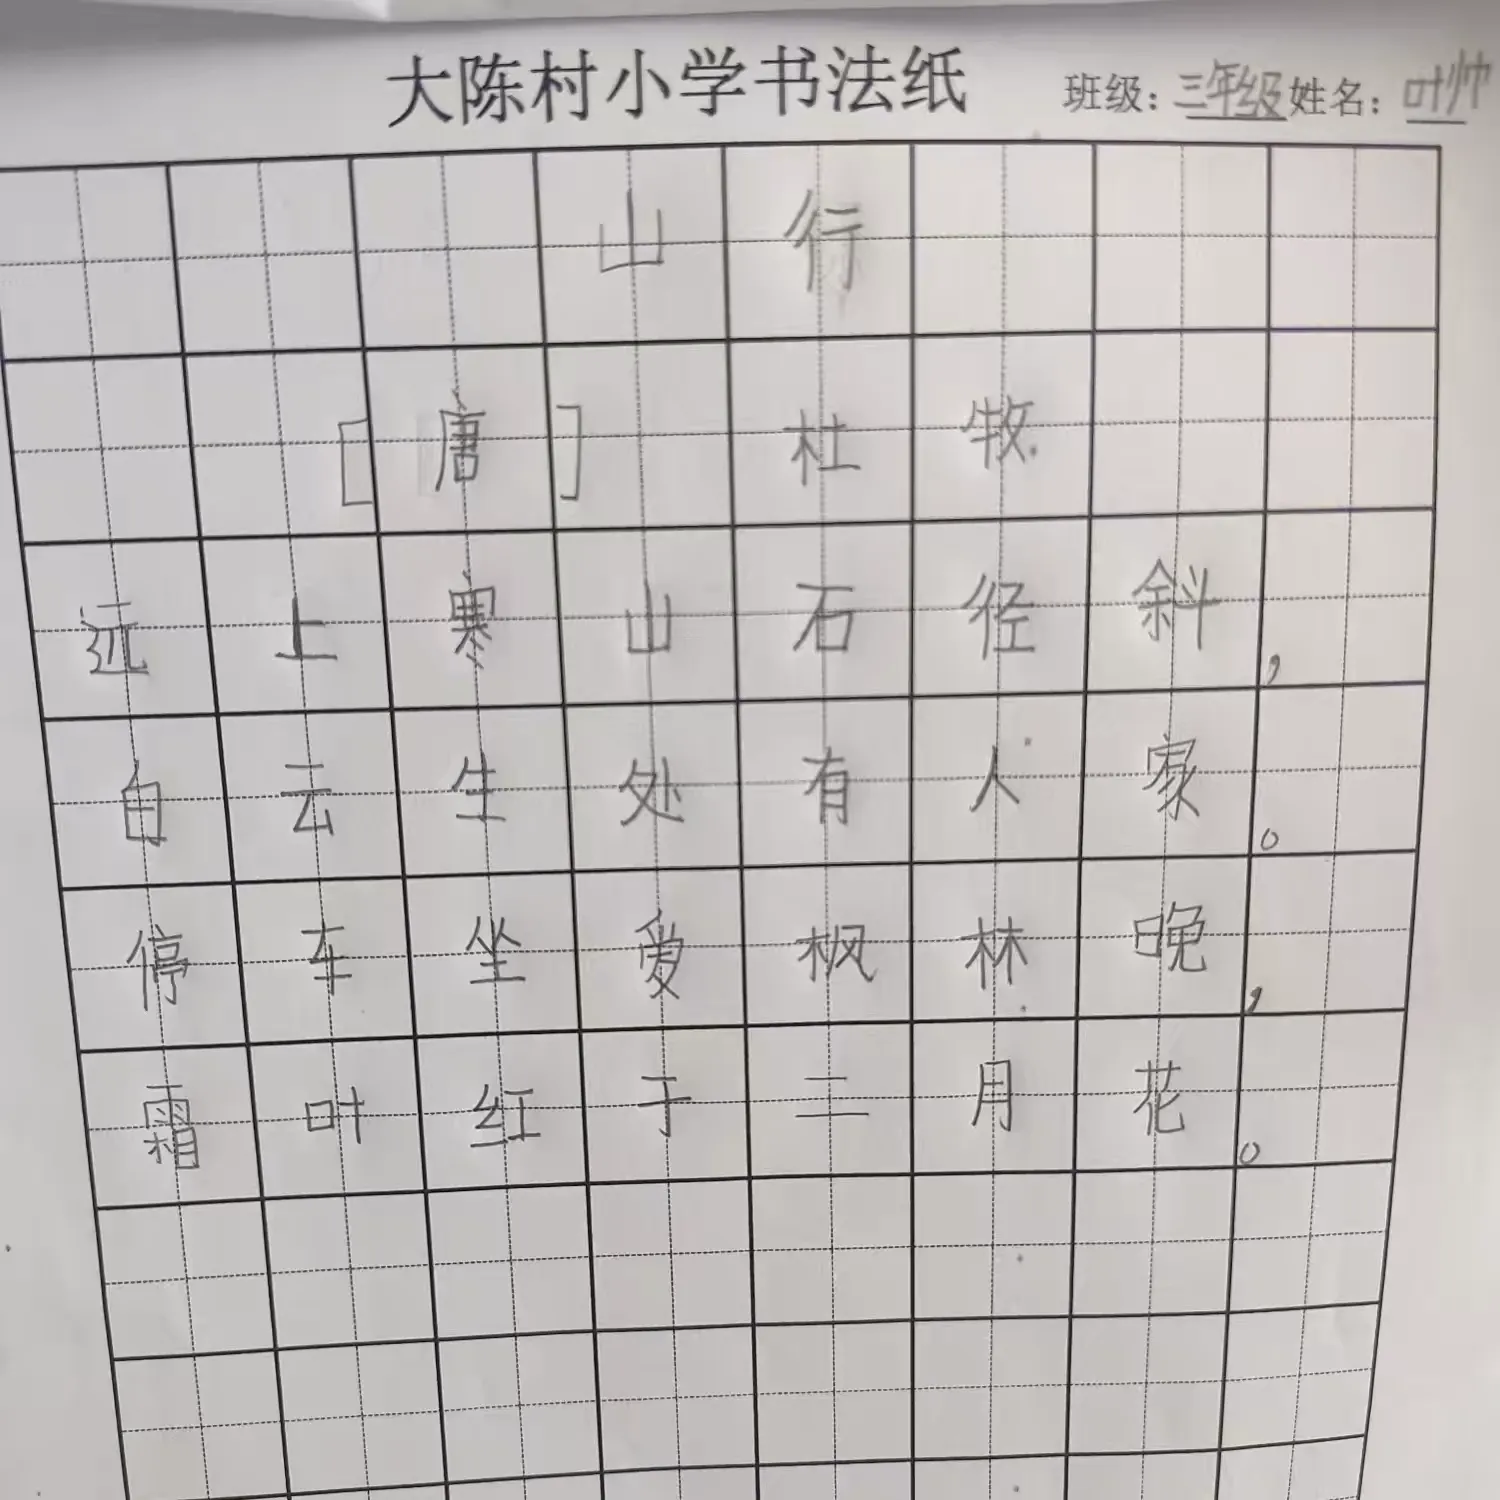 大陈村小学书法纸 班级：三年级 姓名：叶帅
山行
[唐] 杜牧
远上寒山石径斜，
白云生处有人家。
停车坐爱枫林晚，
霜叶红于二月花。